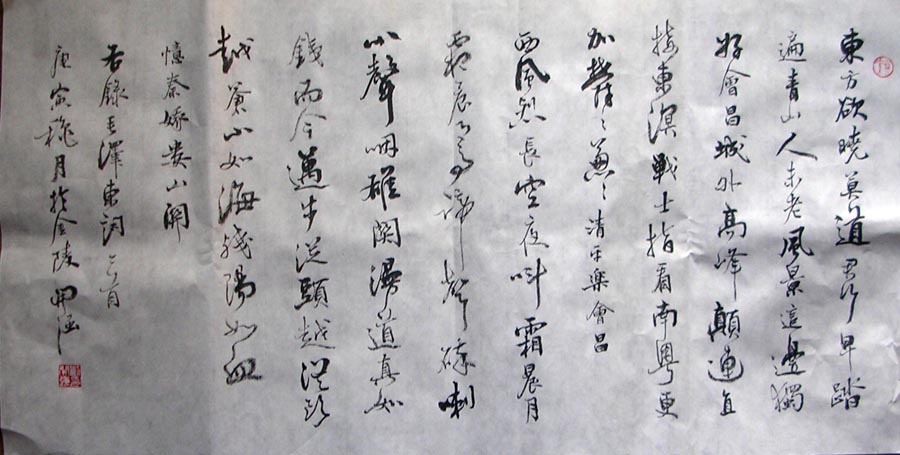 東方欲曉莫道君行早踏
遍青山人未老風景這邊獨
好會昌城外高峰顛連直
接東溟戰士指看南粵更
加鬱〻蔥〻清平樂會昌
西風烈長空夜叫霜晨月
霜晨月馬蹄聲碎喇
叭聲咽雄關漫道真如
鐵而今邁步從頭越從頭
越蒼山如海殘陽如血
憶秦娥婁山關
右錄毛澤東詞二首
庚寅秋月於金陵